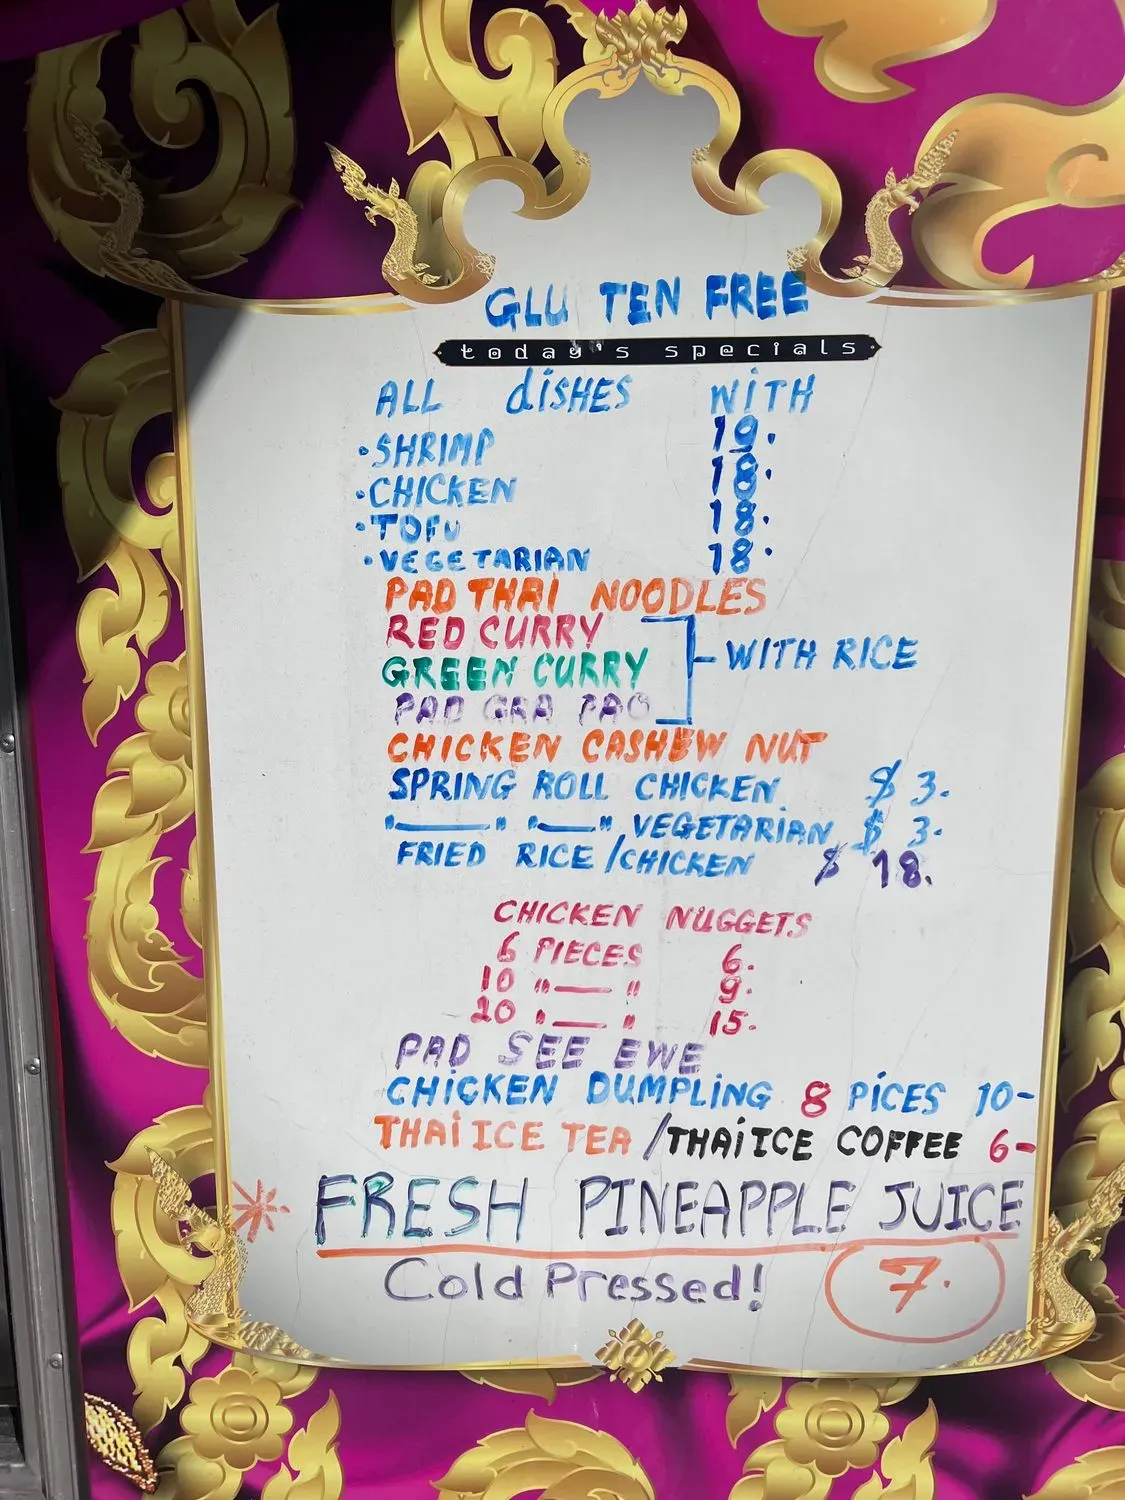 GLUTEN FREE
today's specials
ALL dISHES WITH
·SHRIMP 19.
·CHICKEN 18.
·TOFU 18.
·VEGETARIAN 18.
PAD THAI NOODLES
RED CURRY
GREEN CURRY WITH RICE
PAD GRA PAO
CHICKEN CASHEW NUT
SPRING ROLL CHICKEN $ 3.
"—" "—", VEGETARIAN $ 3.
FRIED RICE /CHICKEN $ 18.
CHICKEN NUGGETS
6 PIECES 6.
10 "—" 9.
20 "—" 15.
PAD SEE EWE
CHiCKEN DUMPLiNG 8 PiCES 10-
THAi ICE TEA /THAi ICE COFFEE 6-
* FRESH PINEAPPLE JUICE
Cold Pressed! 7.